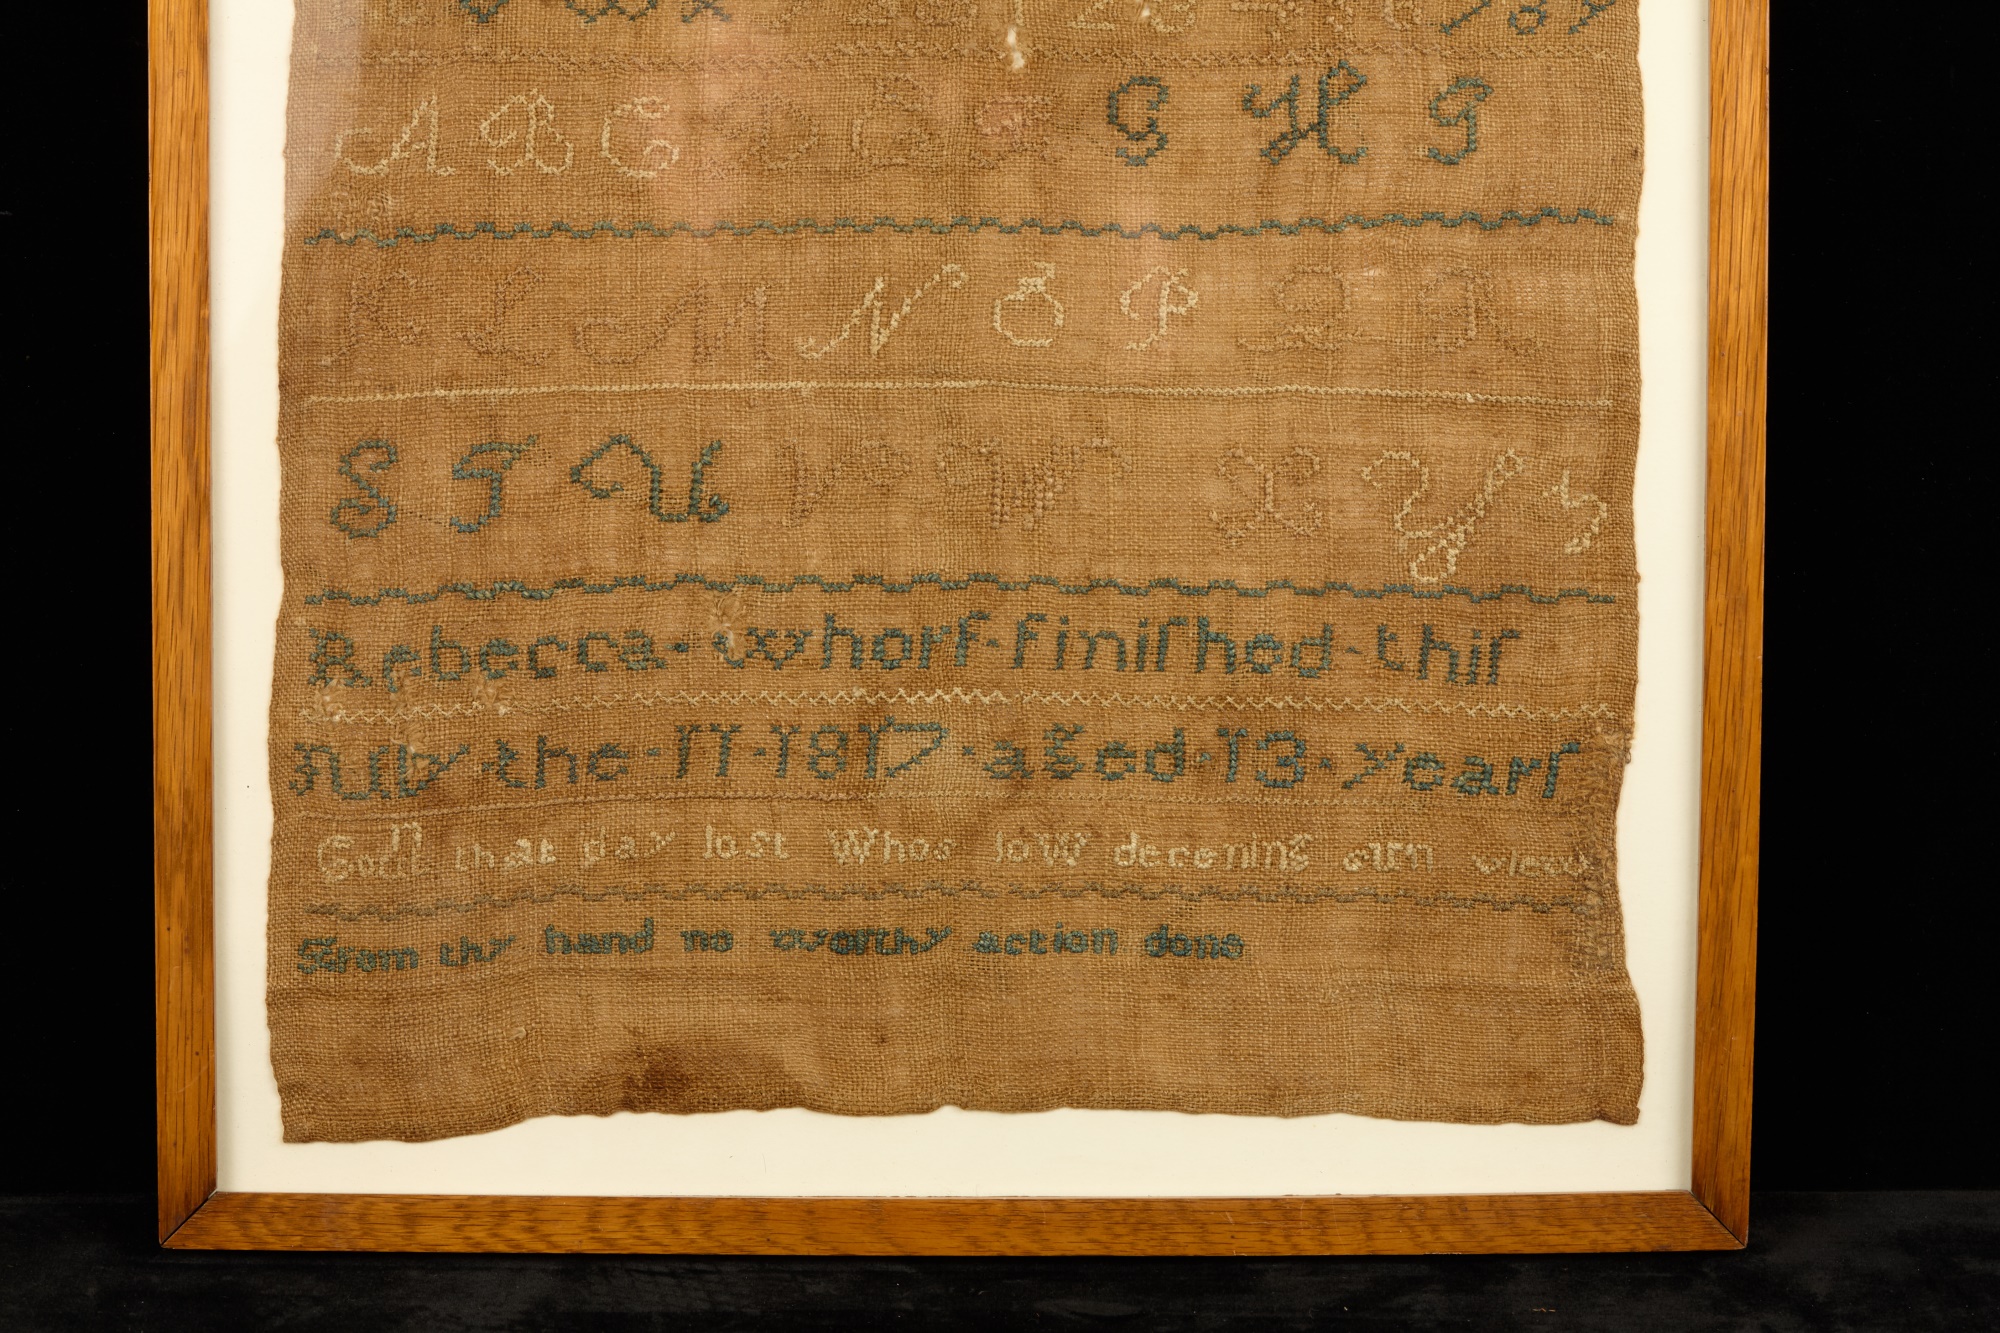 A B C D E F G H I
K L M N O P Q R
S T U V W X Y Z
Rebecca · Whorf · finiſhed · thiſ
the · 11 · 1817 · aged · 13 · yearſ
that day lost Whos low decening
From thy hand no worthy action done